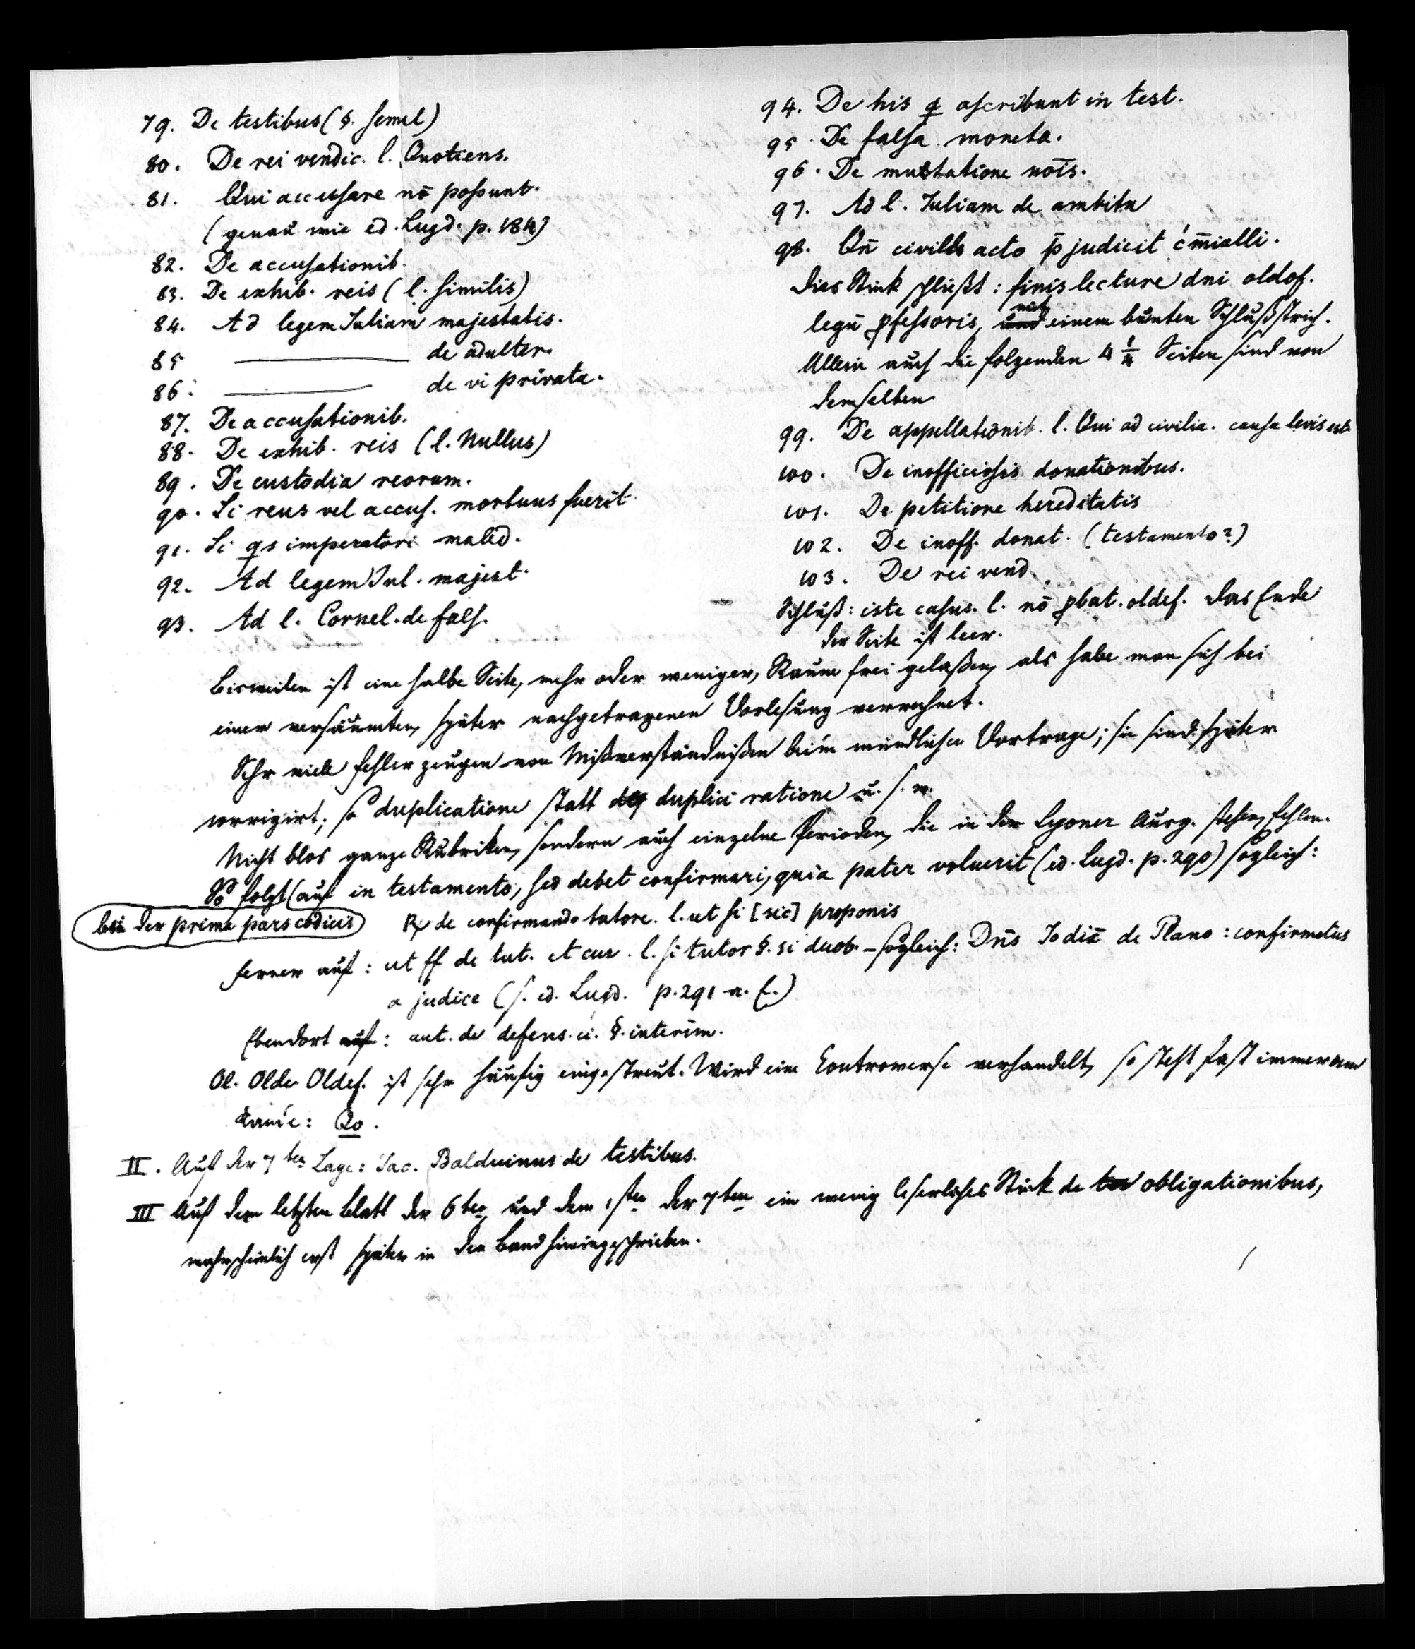 79. De testibus (§. Semel)
80. De rei vendic. l. Quotiens.
81. Qui accusare nō possunt.
(genau wie ed. Lugd. p. 184)
82. De accusationib.
83. De exhib. reis (l. Similis)
84. Ad legem Juliam majestatis.
85 ——— de adulter.
86. ——— de vi privata.
87. De accusationib.
88. De exhib. reis (l. Nullus)
89. De custodia reorum.
90. Si reus vel accus. mortuus fuerit.
91. Si qs imperatori maled.
92. Ad legem Jul. majest.
93. Ad l. Cornel. de fals.
94. De his q ascribunt in test.
95. De falsa moneta.
96. De mutatione nois.
97. Ad l. Juliam de ambitu
98. Qn̄ civilis acto p̄judicit c̄mialli.
Dies Stück schließt: finis lecture dni oldof.
legū pfessoris, mit einem bunten Schlußstrich.
Allein auch die folgenden 4 1/4 Seiten sind von
demselben
99. De appellationib. l. Qui ad civilia. causa levis est
100. De inofficiosis donationibus.
101. De petitione hereditatis
102. De inoff. donat. (testamento?)
103. De rei vend.
Schluß: iste casus. l. nō pbat. oldef. Das Ende
der Seite ist leer.
Bisweilen ist eine halbe Seite, mehr oder weniger, Raum frei gelaßen, als habe man sich bei
einer versäumten, später nachgetragenen Vorlesung verrechnet.
Sehr viele Fehler zeugen von Mißverständnißen beim mündlichen Vortrage; sie sind später
corrigirt; so duplicatione statt duplici ratione u. s. w.
Nicht blos ganze Rubriken, sondern auch einzelne Perioden, die in der Lyoner Ausg. stehen, fehlen.
So folgt (auf in testamento, sed debet confirmari, quia pater voluerit (ed. Lugd. p. 290) sogleich:
bei der prima pars codicis) R de confirmando tutore. l. ut si [sic] proponis
ferner auf: ut ff de tut. et cur. l. si tutor §. si duob – sogleich: Dn̄s Jodiē de Plano: confirmatus
a judice (s. ed. Lugd. p. 291 a. E.)
Ebendort auf: aut. de defens. ci. §. interim.
Ol. Olde. Oldef. ist sehr häufig eingestreut. Wird eine Controverse verhandelt, so steht fast immer am
Rande: Qo.
II. Auf der 7ten Lage: Jac. Balduinus de testibus.
III Auf dem letzten Blatt der 6ten und dem 1sten der 7ten ein wenig leserliches Stück de obligationibus,
wahrscheinlich erst später in den Band hineingeschrieben.